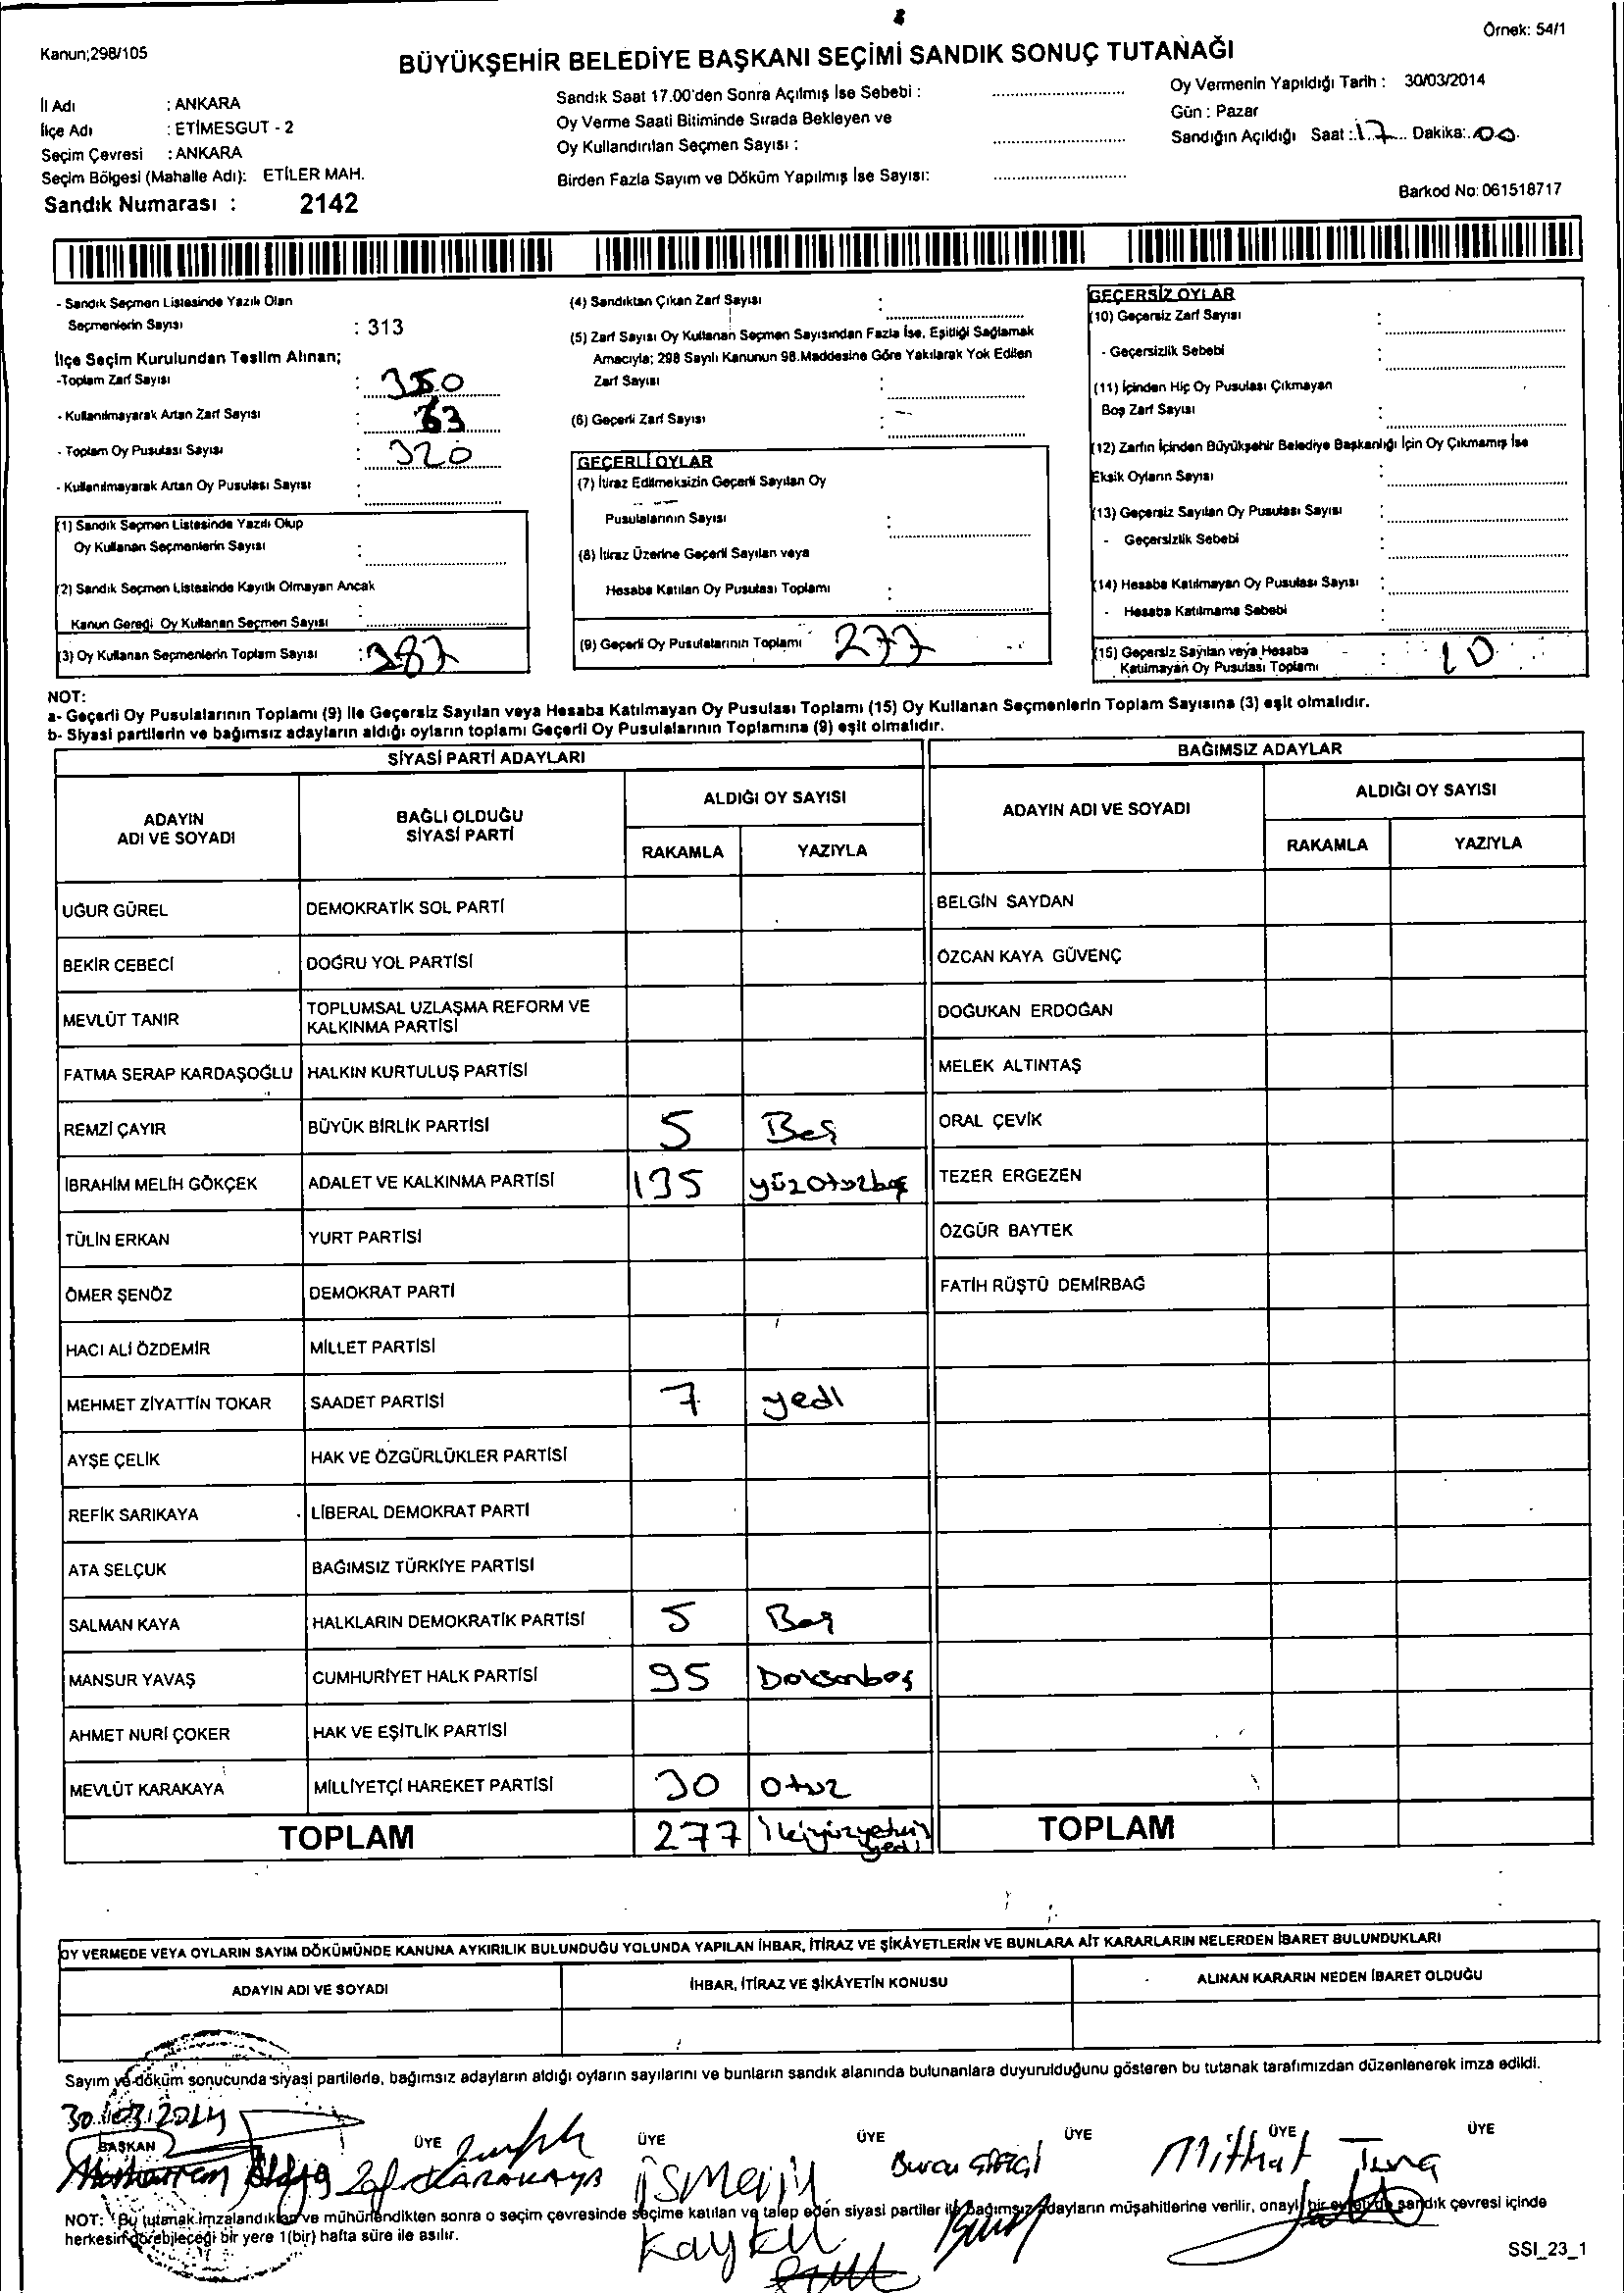 Örnek: 54/1
Kanun;298/105
BÜYÜKŞEHİR BELEDİYE BAŞKANI SEÇİMİ SANDIK SONUÇ TUTANAĞI
İl Adı : ANKARA
İlçe Adı : ETİMESGUT - 2
Seçim Çevresi : ANKARA
Seçim Bölgesi (Mahalle Adı): ETİLER MAH.
Sandık Numarası : 2142
Sandık Saat 17.00'den Sonra Açılmış İse Sebebi :
Oy Verme Saati Bitiminde Sırada Bekleyen ve
Oy Kullandırılan Seçmen Sayısı :
Birden Fazla Sayım ve Döküm Yapılmış İse Sayısı:
Oy Vermenin Yapıldığı Tarih : 30/03/2014
Gün : Pazar
Sandığın Açıldığı Saat : 17 Dakika: 00
Barkod No: 061518717
- Sandık Seçmen Listesinde Yazılı Olan
Seçmenlerin Sayısı : 313
İlçe Seçim Kurulundan Teslim Alınan;
-Toplam Zarf Sayısı : 350
- Kullanılmayarak Artan Zarf Sayısı : 63
- Toplam Oy Pusulası Sayısı : 320
- Kullanılmayarak Artan Oy Pusulası Sayısı :
(1) Sandık Seçmen Listesinde Yazılı Olup
Oy Kullanan Seçmenlerin Sayısı :
(2) Sandık Seçmen Listesinde Kayıtlı Olmayan Ancak
Kanun Gereği Oy Kullanan Seçmen Sayısı :
(3) Oy Kullanan Seçmenlerin Toplam Sayısı : 287
(4) Sandıktan Çıkan Zarf Sayısı :
(5) Zarf Sayısı Oy Kullanan Seçmen Sayısından Fazla İse, Eşitliği Sağlamak
Amacıyla; 298 Sayılı Kanunun 98.Maddesine Göre Yakılarak Yok Edilen
Zarf Sayısı :
(6) Geçerli Zarf Sayısı :
GEÇERLİ OYLAR
(7) İtiraz Edilmeksizin Geçerli Sayılan Oy
Pusulalarının Sayısı :
(8) İtiraz Üzerine Geçerli Sayılan veya
Hesaba Katılan Oy Pusulası Toplamı :
(9) Geçerli Oy Pusulalarının Toplamı 277
GEÇERSİZ OYLAR
(10) Geçersiz Zarf Sayısı :
- Geçersizlik Sebebi :
(11) İçinden Hiç Oy Pusulası Çıkmayan
Boş Zarf Sayısı :
(12) Zarfın İçinden Büyükşehir Belediye Başkanlığı İçin Oy Çıkmamış İse
Eksik Oyların Sayısı :
(13) Geçersiz Sayılan Oy Pusulası Sayısı :
- Geçersizlik Sebebi :
(14) Hesaba Katılmayan Oy Pusulası Sayısı :
- Hesaba Katılmama Sebebi :
(15) Geçersiz Sayılan veya Hesaba
Katılmayan Oy Pusulası Toplamı : 10
NOT:
a- Geçerli Oy Pusulalarının Toplamı (9) ile Geçersiz Sayılan veya Hesaba Katılmayan Oy Pusulası Toplamı (15) Oy Kullanan Seçmenlerin Toplam Sayısına (3) eşit olmalıdır.
b- Siyasi partilerin ve bağımsız adayların aldığı oyların toplamı Geçerli Oy Pusulalarının Toplamına (9) eşit olmalıdır.
SİYASİ PARTİ ADAYLARI
ADAYIN ADI VE SOYADI
BAĞLI OLDUĞU SİYASİ PARTİ
ALDIĞI OY SAYISI
RAKAMLA YAZIYLA
UĞUR GÜREL DEMOKRATİK SOL PARTİ
BEKİR CEBECİ DOĞRU YOL PARTİSİ
MEVLÜT TANIR TOPLUMSAL UZLAŞMA REFORM VE KALKINMA PARTİSİ
FATMA SERAP KARDAŞOĞLU HALKIN KURTULUŞ PARTİSİ
REMZİ ÇAYIR BÜYÜK BİRLİK PARTİSİ 5 Beş
İBRAHİM MELİH GÖKÇEK ADALET VE KALKINMA PARTİSİ 135 yüzotuzbeş
TÜLİN ERKAN YURT PARTİSİ
ÖMER ŞENÖZ DEMOKRAT PARTİ
HACI ALİ ÖZDEMİR MİLLET PARTİSİ
MEHMET ZİYATTİN TOKAR SAADET PARTİSİ 7 yedi
AYŞE ÇELİK HAK VE ÖZGÜRLÜKLER PARTİSİ
REFİK SARIKAYA LİBERAL DEMOKRAT PARTİ
ATA SELÇUK BAĞIMSIZ TÜRKİYE PARTİSİ
SALMAN KAYA HALKLARIN DEMOKRATİK PARTİSİ 5 Beş
MANSUR YAVAŞ CUMHURİYET HALK PARTİSİ 95 Doksanbeş
AHMET NURİ ÇOKER HAK VE EŞİTLİK PARTİSİ
MEVLÜT KARAKAYA MİLLİYETÇİ HAREKET PARTİSİ 30 otuz
TOPLAM 277 İkiyüzyetmiş yedi
BAĞIMSIZ ADAYLAR
ADAYIN ADI VE SOYADI
ALDIĞI OY SAYISI
RAKAMLA YAZIYLA
BELGİN SAYDAN
ÖZCAN KAYA GÜVENÇ
DOĞUKAN ERDOĞAN
MELEK ALTINTAŞ
ORAL ÇEVİK
TEZER ERGEZEN
ÖZGÜR BAYTEK
FATİH RÜŞTÜ DEMİRBAĞ
TOPLAM
OY VERMEDE VEYA OYLARIN SAYIM DÖKÜMÜNDE KANUNA AYKIRILIK BULUNDUĞU YOLUNDA YAPILAN İHBAR, İTİRAZ VE ŞİKÂYETLERİN VE BUNLARA AİT KARARLARIN NELERDEN İBARET BULUNDUKLARI
ADAYIN ADI VE SOYADI
İHBAR, İTİRAZ VE ŞİKÂYETİN KONUSU
ALINAN KARARIN NEDEN İBARET OLDUĞU
Sayım ve döküm sonucunda siyasi partilerle, bağımsız adayların aldığı oyların sayılarını ve bunların sandık alanında bulunanlara duyurulduğunu gösteren bu tutanak tarafımızdan düzenlenerek imza edildi.
30/03/2014
BAŞKAN ÜYE ÜYE ÜYE ÜYE ÜYE ÜYE
Muharrem KARAKAYA İSMAİL Burcu Mithat Tuna
NOT: Bu tutanak imzalandıktan ve mühürlendikten sonra o seçim çevresinde seçime katılan ve talep eden siyasi partiler ile bağımsız adayların müşahitlerine verilir, onaylı bir sureti de sandık çevresi içinde
herkesin görebileceği bir yere 1(bir) hafta süre ile asılır.
SSI_23_1